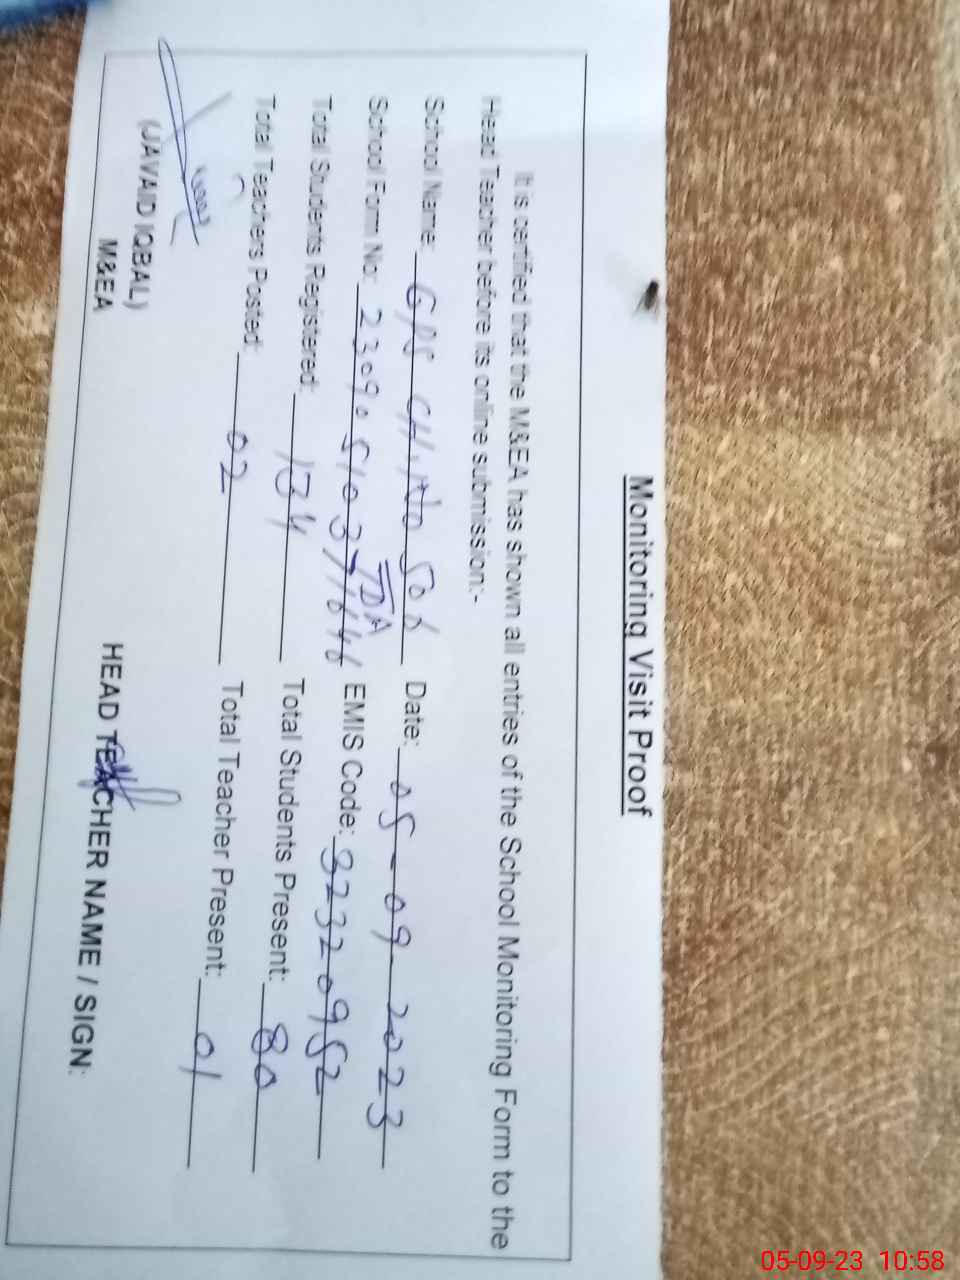 Monitoring Visit Proof
It is certified that the M&EA has shown all entries of the School Monitoring Form to the
Head Teacher before its online submission:-
School Name: GPS Date: 05-09 2023
School Form No: EMIS Code: 32320952
Total Students Registered: 134 Total Students Present: 80
Total Teachers Posted: 02 Total Teacher Present: 01
(JAVAID IQBAL)
M&EA
HEAD TEACHER NAME / SIGN:
05-09-23 10:58